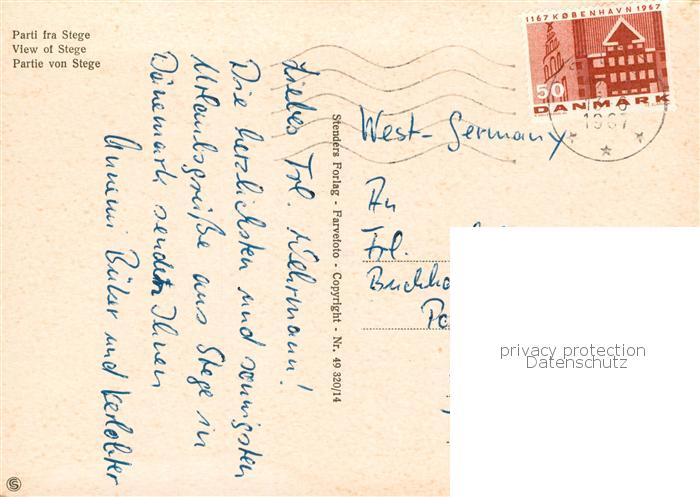 Parti fra Stege
View of Stege
Partie von Stege
1167 KØBENHAVN 1967
50
DANMARK
1967
Liebes Frl. Wehrmann!
Die herzlichsten und sonnigsten
Urlaubsgrüße aus Stege in
Dänemark senden Ihnen
und Verlobter
Stenders Forlag - Farvefoto - Copyright - Nr. 49 320/14
West-Germany
An
Frl.
privacy protection
Datenschutz